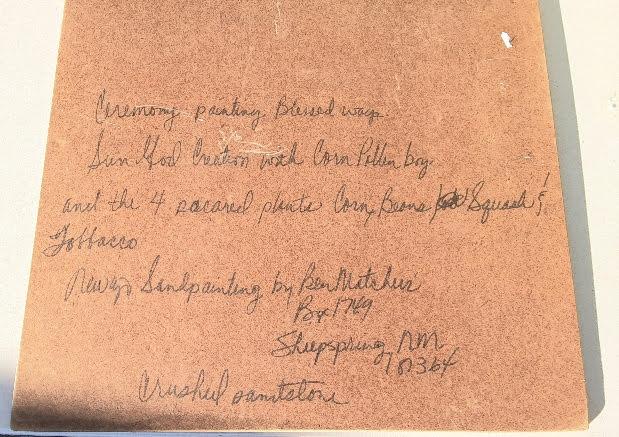 Ceremony painting Blessed way
Sun God Creation with Corn Pollen boy
and the 4 sacared plants Corn, Beans Squash &
Tobbacco
Sandpainting by Ben
Bx 1769
Sheepspring, NM
87364
Crushed sandstone